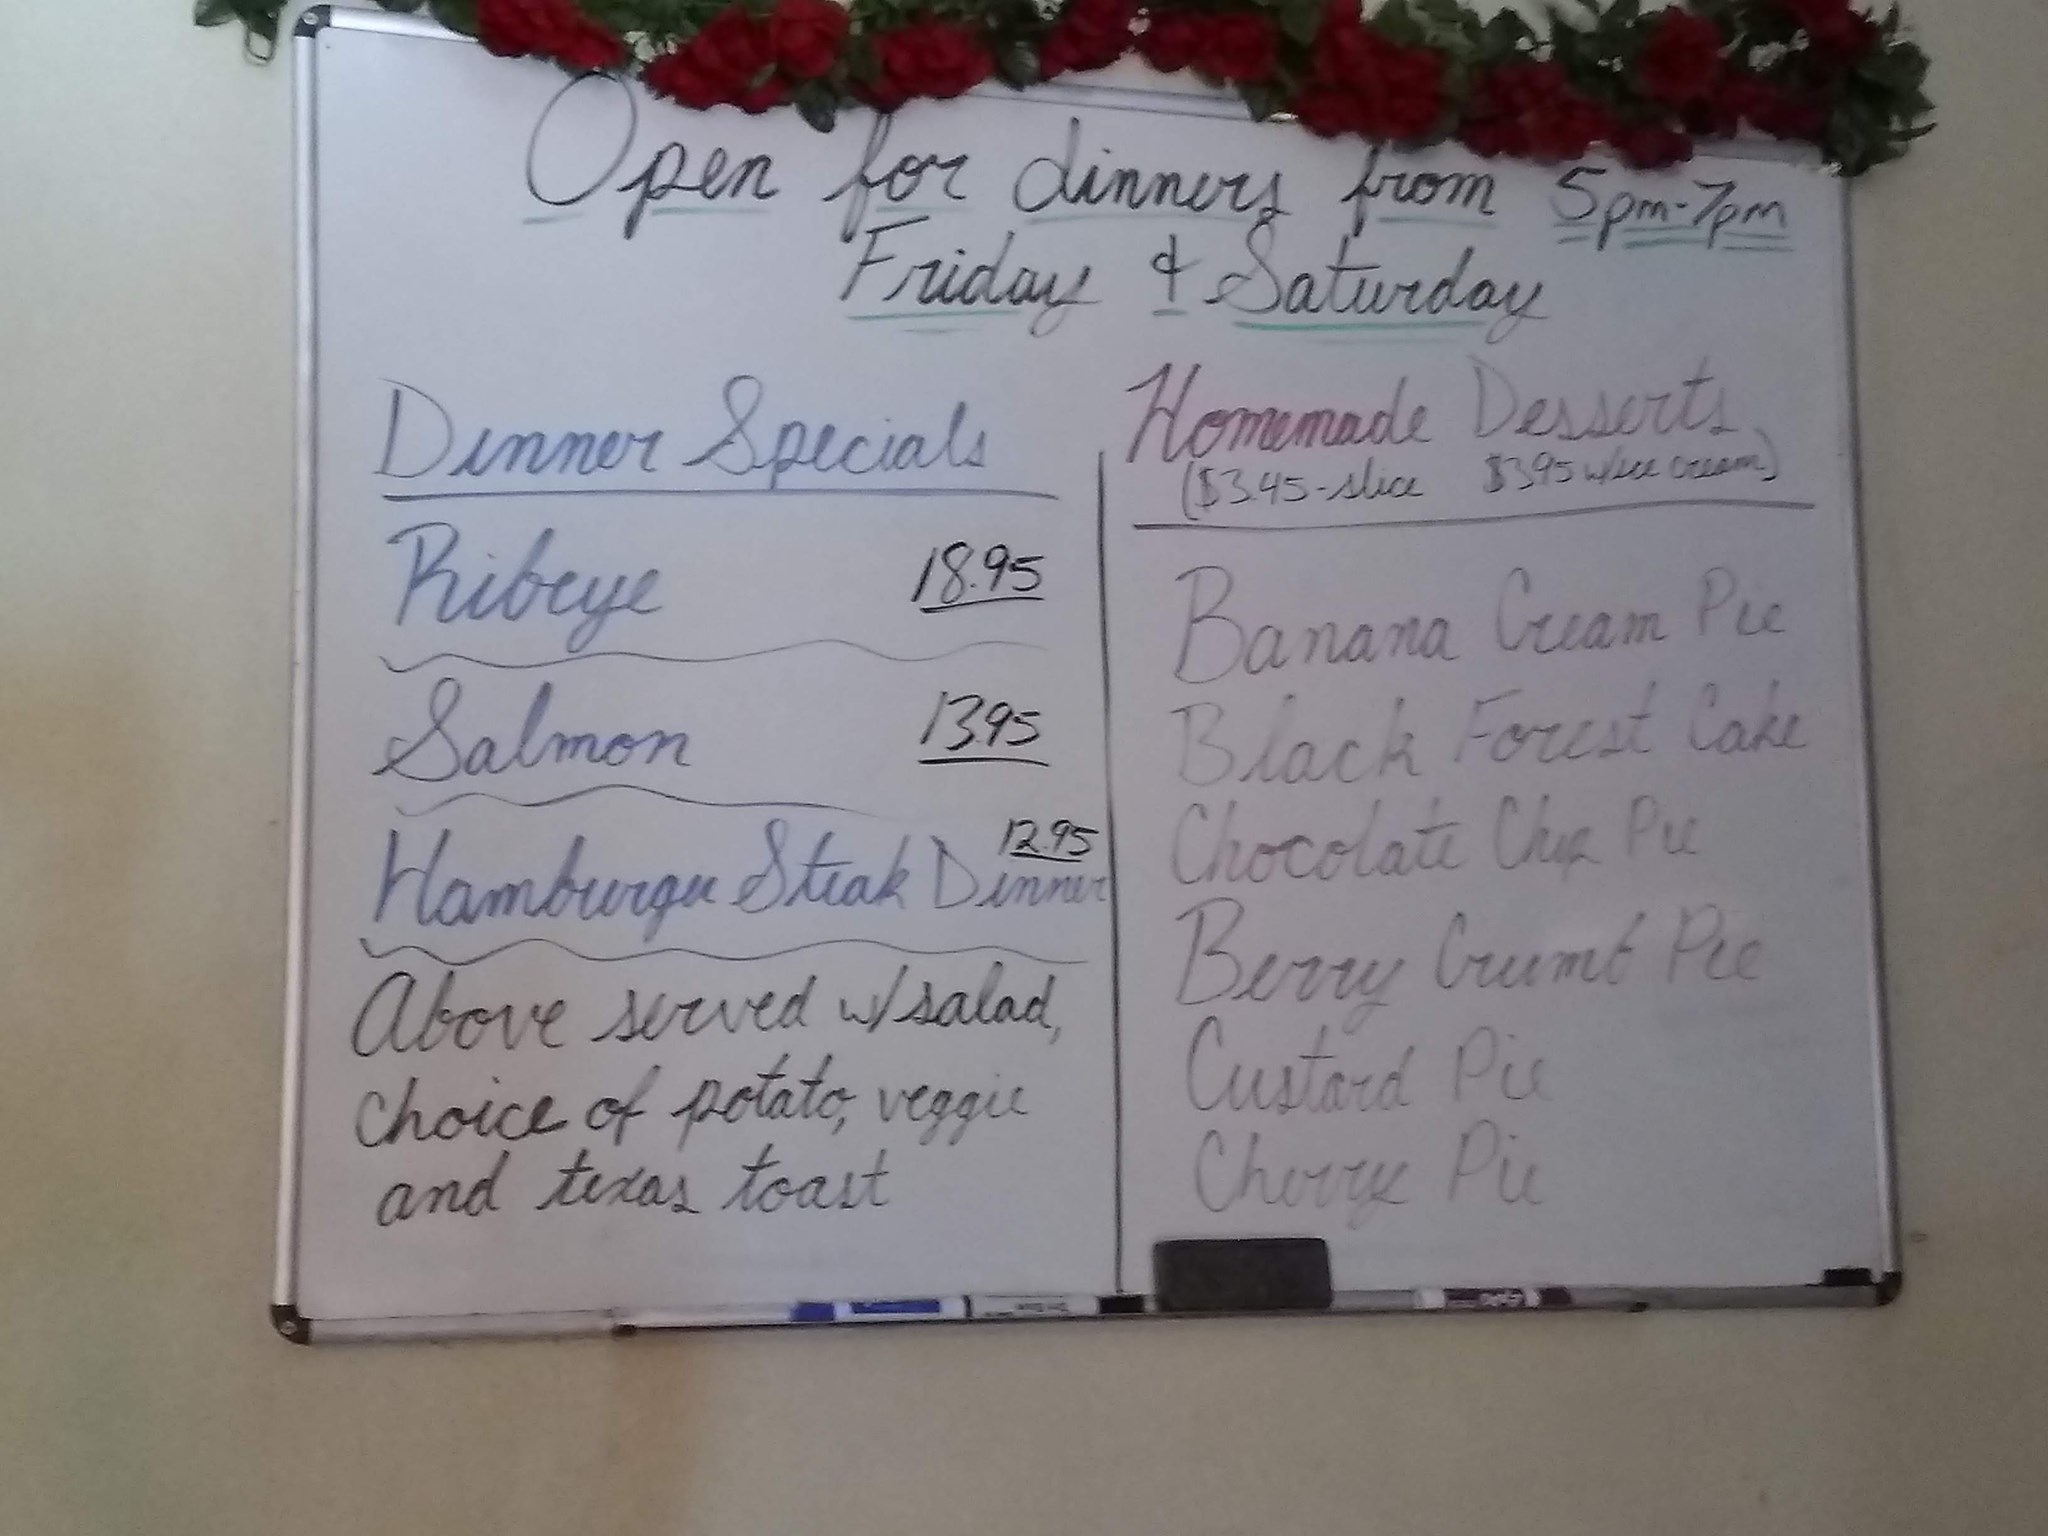 Open for dinners from 5pm-7pm
Friday & Saturday
Dinner Specials
Ribeye 18.95
Salmon 13.95
12.95
Hamburger Steak Dinner
Above served w/ salad,
choice of potato, veggie
and texas toast
Homemade Desserts
($3.45-slice $3.95 w/ice cream)
Banana Cream Pie
Black Forest Cake
Chocolate Chip Pie
Berry Crumb Pie
Custard Pie
Cherry Pie